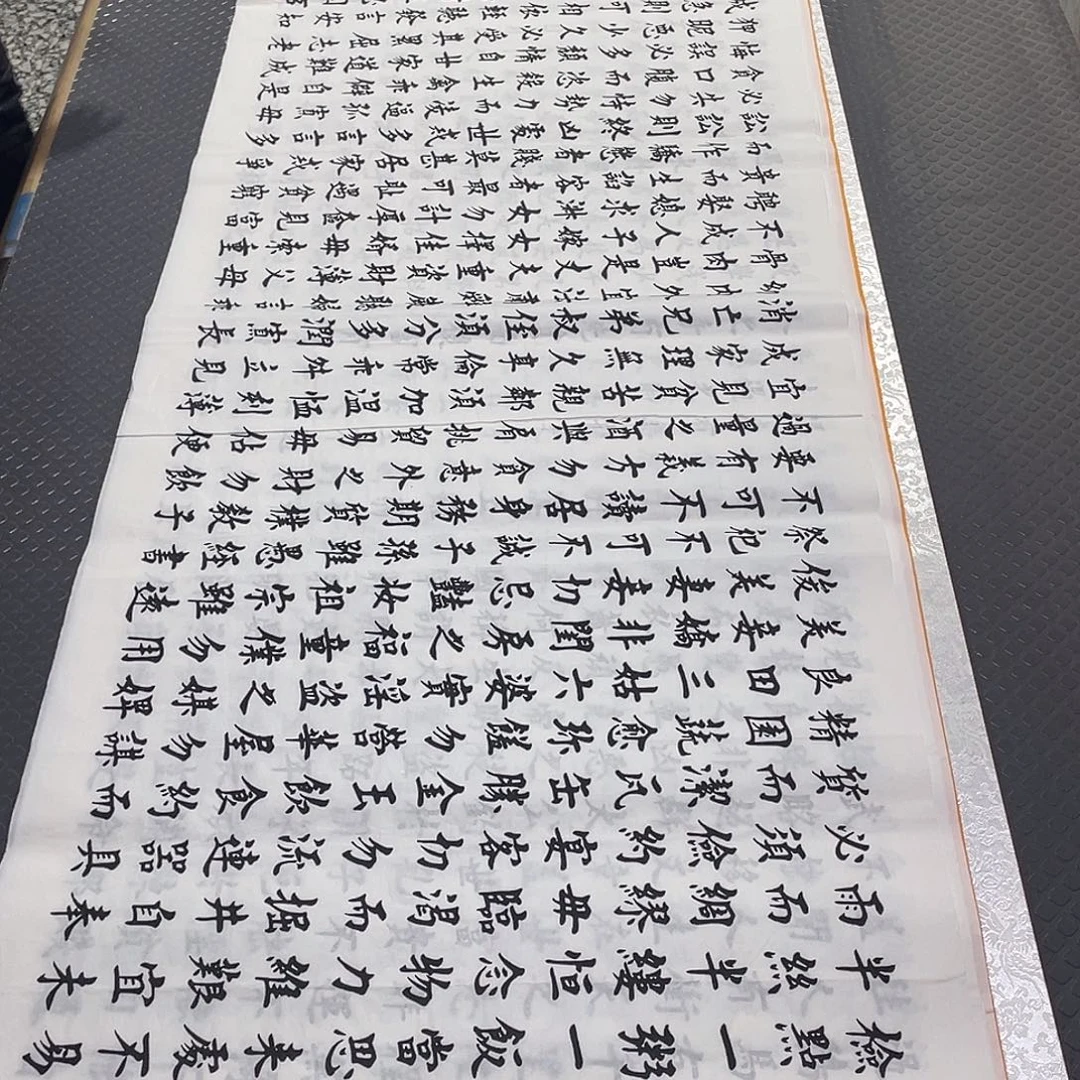 檢點一粥一飯當思來處不易
半絲半縷恒念物力維艱宜未
雨而綢繆毋臨渴而掘井自奉
必須儉約宴客切勿流連器具
質而潔瓦缶勝金玉飲食約而
精園蔬愈珍饈勿營華屋勿謀
良田三姑六婆實淫盜之媒婢
美妾嬌非閨房之福童僕勿用
俊美妻妾切忌豔妝祖宗雖遠
祭祀不可不誠子孫雖愚經書
不可不讀居身務期質樸教子
要有義方勿貪意外之財勿飲
過量之酒與肩挑貿易毋佔便
宜見貧苦親鄰須加溫恤刻薄
成家理無久享倫常乖舛立見
消亡兄弟叔侄須分多潤寡長
幼內外宜法肅辭嚴聽婦言乖
骨肉豈是丈夫重資財薄父母
不成人子嫁女擇佳婿毋索重
聘娶媳求淑女勿計厚奩見富
貴而生諂容者最可恥遇貧窮
而作驕態者賤莫甚居家戒爭
訟訟則終凶處世戒多言言多
必失勿恃勢力而凌逼孤寡毋
貪口腹而恣殺生禽乖僻自是
悔誤必多頹惰自甘家道難成
狎暱惡少久必受其累屈志老